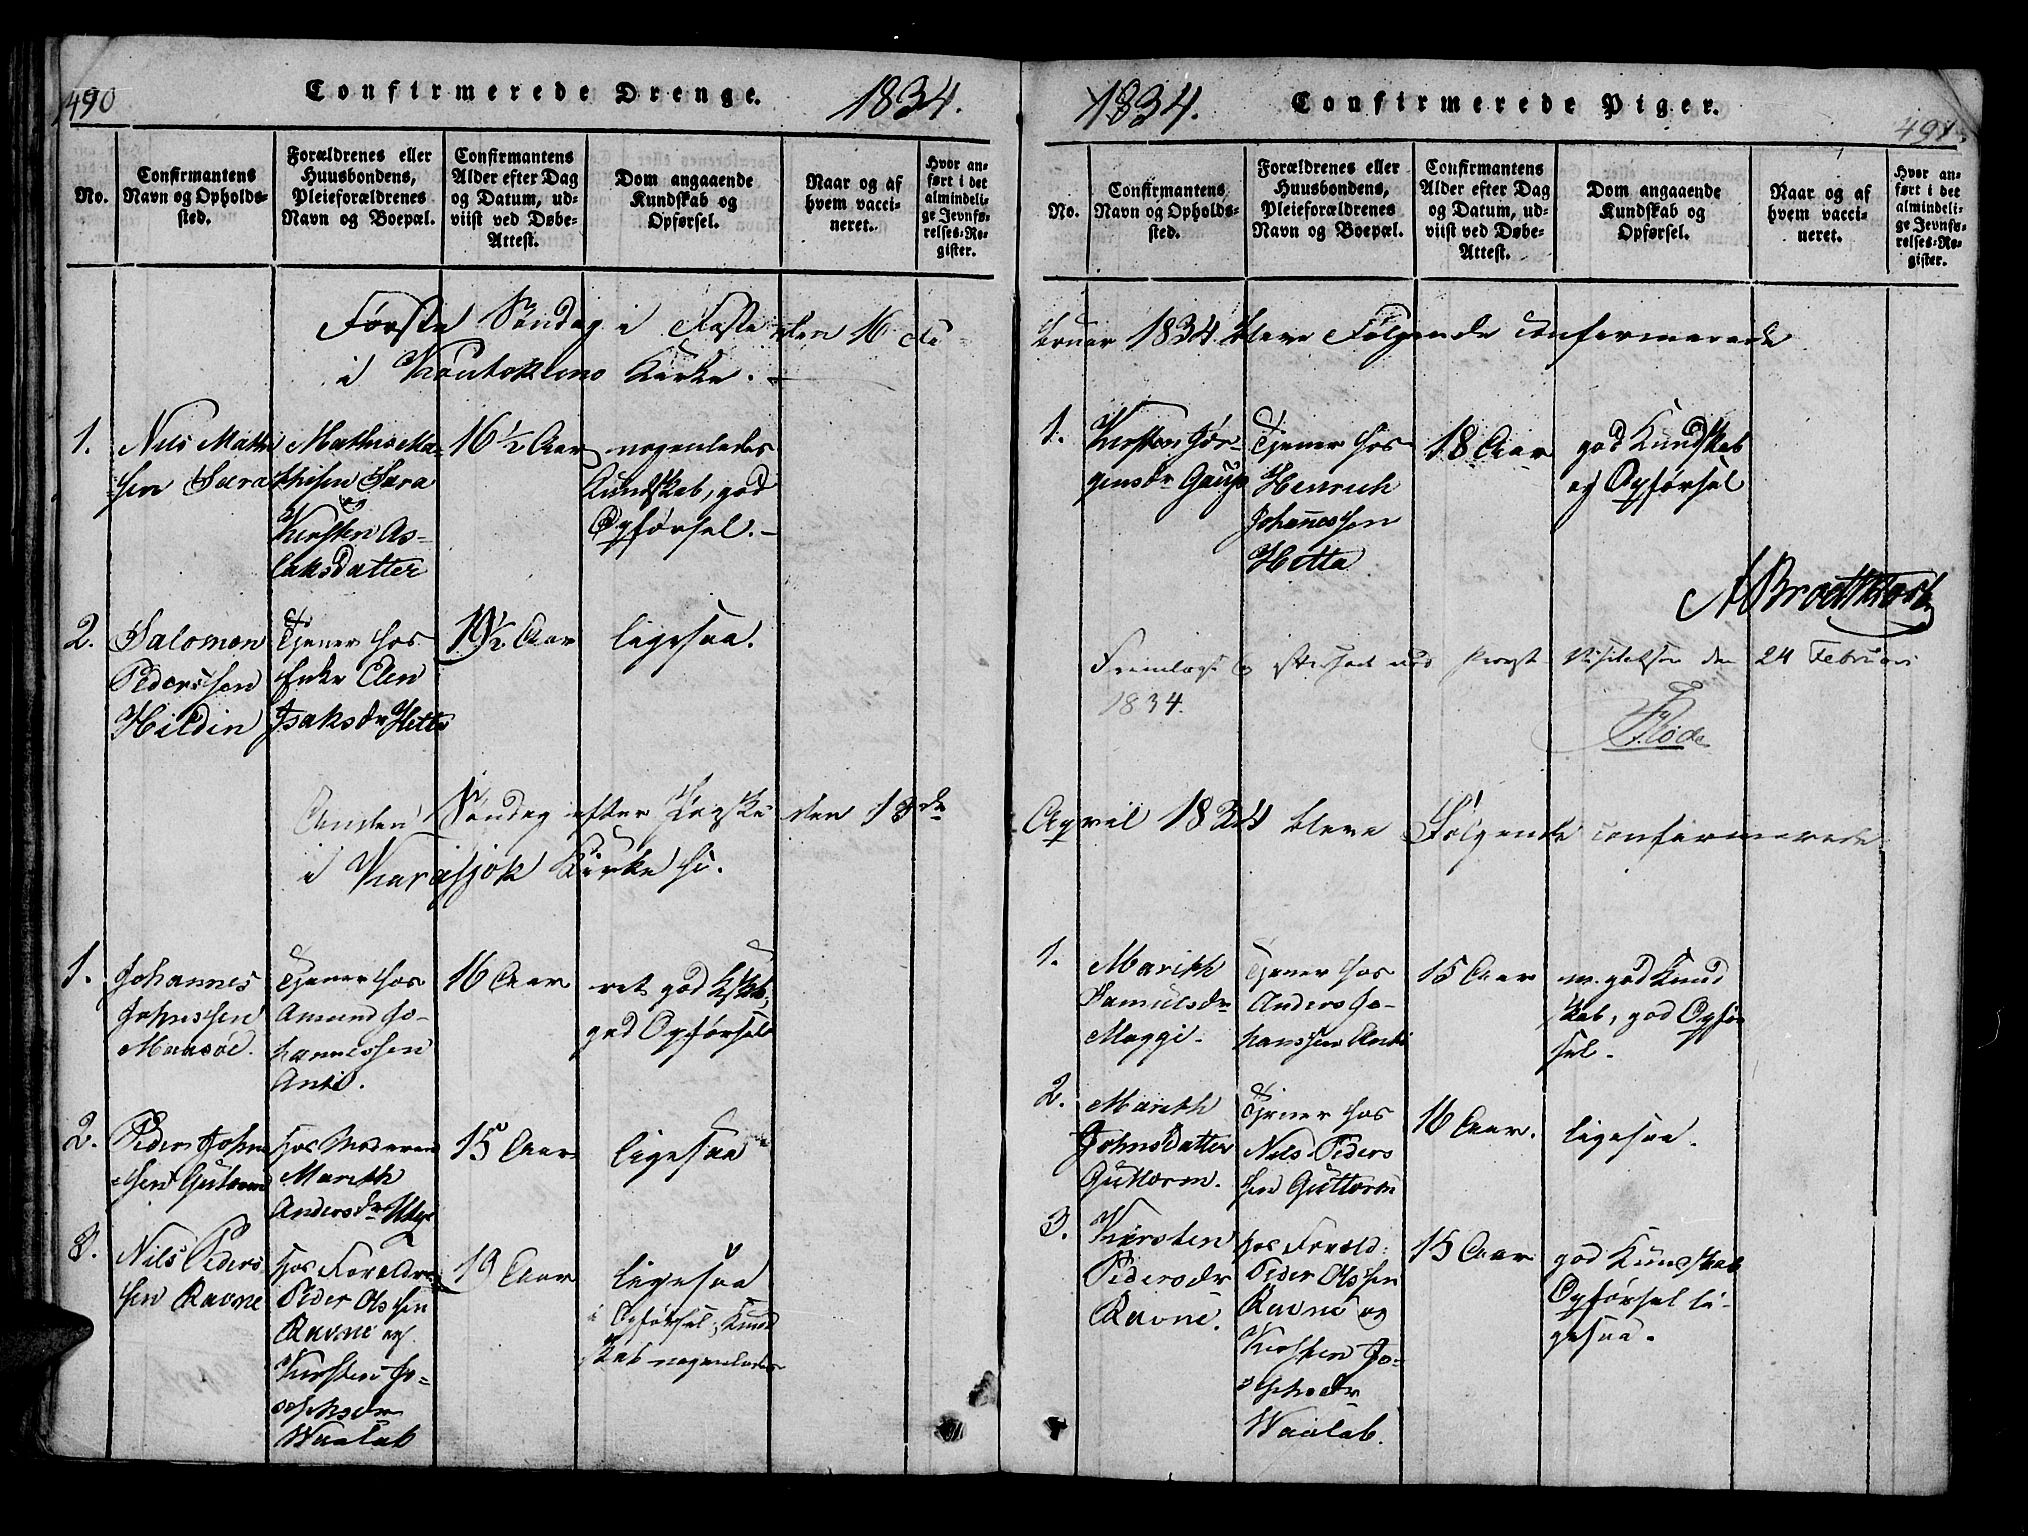 490
Confirmerede Drenge.
1834.
No.
Confirmantens
Navn og Opholds-
sted.
Forældrenes eller
Huusbondens,
Pleieforældrenes
Navn og Boepæl.
Confirmantens
Alder efter Dag
og Datum, ud-
viist ved Døbe-
Attest.
Dom angaaende
Kundskab og
Opførsel.
Naar og af
hvem vacci-
neret.
Hvor an-
ført i det
almindeli-
ge Jevnfø-
relses-Re-
gister.
Første Søndag i Faste den 16 de
i Koutokeino Kirke.
1.
Nils Mathi
sen Sara
Mathis Ma-
thisen Sara
og
Kirsten As-
laksdatter
16 1/2 Aar
nogenledes
Kundskab, god
Opførsel.
2.
Salomon
Pederssen
Hildin
Tjener hos
Enke Elen
Isaksdr Hetta
19 1/2 Aar
ligesaa.
Anden Søndag efter Paaske den 13de
i Karasjok Kirke
1.
Johannes
Johnssen
Maasøe.
Tjener hos
Amund Jo-
hannessen
Anti.
16 Aar
ret god Kskb,
god Opførsel
2.
Peder John
sen Guttorm
hos Moderen
Marith
Andersdr
15 Aar
ligesaa
3.
Nils Peders
sen Ravne
hos Forældre
Peder Olssen
Ravne og
Kirsten Jo-
sephsdr
Waalab
19 Aar
ligesaa
i Opførsel, Kund
skab nogenledes
1834.
Confirmerede Piger.
491.
No.
Confirmantens
Navn og Opholds-
sted.
Forældrenes eller
Huusbondens,
Pleieforældrenes
Navn og Boepæl.
Confirmantens
Alder efter Dag
og Datum, ud-
viist ved Døbe-
Attest.
Dom angaaende
Kundskab og
Opførsel.
Naar og af
hvem vacci-
neret.
Hvor an-
ført i det
almindeli-
ge Jevnfø-
relses-Re-
gister.
bruar 1834 bleve Følgende confirmerede
1.
Kirsten Jør-
gensdr Gaup
Tjener hos
Henrich
Johannessen
Hetta
18 Aar
god Kundskab
og Opførsel
Fremlagt og efterseet ved Provst Visitatsen den 24 Februari
1834.
April 1834 bleve Følgende confirmerede
1.
Marith
Samuelsdr
Moggi.
Tjener hos
Anders Jo-
hanssen Anti
15 Aar
m. god Kund
skab, god Opfør
sel.
2.
Marith
Johnsdatter
Guttorm.
Tjener hos
Nils Peders
sen Guttorm
16 Aar.
ligesaa.
3.
Kirsten
Pedersdr
Ravne.
hos Foræld:
Peder Olssen
Ravne og
Kirsten Jo-
sephsdr
Waalab.
15 Aar
god Kundskab
Opførsel li-
gesaa.